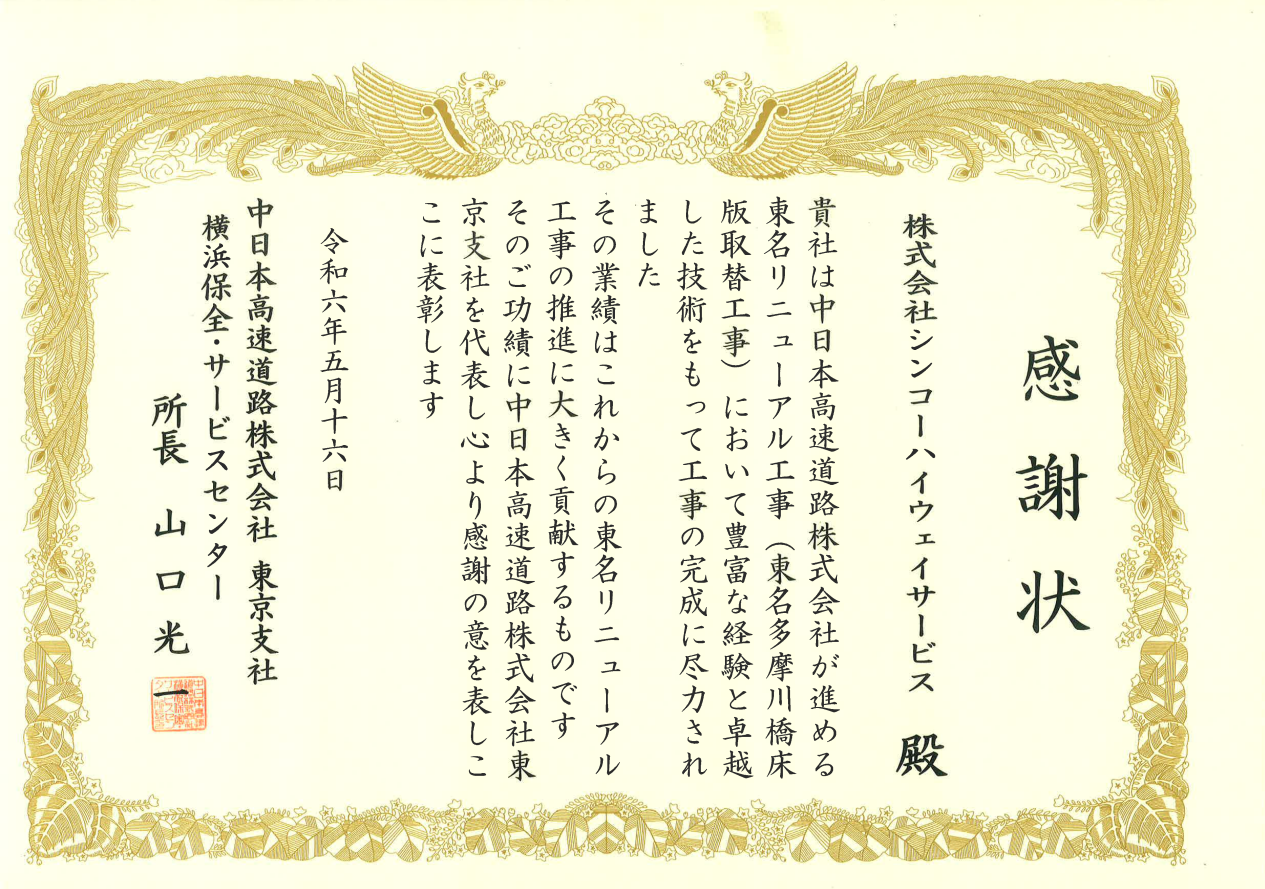 感謝状
株式会社シンコーハイウェイサービス 殿
貴社は中日本高速道路株式会社が進める
東名リニューアル工事（東名多摩川橋床
版取替工事）において豊富な経験と卓越
した技術をもって工事の完成に尽力され
ました
その業績はこれからの東名リニューアル
工事の推進に大きく貢献するものです
そのご功績に中日本高速道路株式会社東
京支社を代表し心より感謝の意を表しこ
こに表彰します
令和六年五月十六日
中日本高速道路株式会社 東京支社
横浜保全・サービスセンター
所長 山口光一